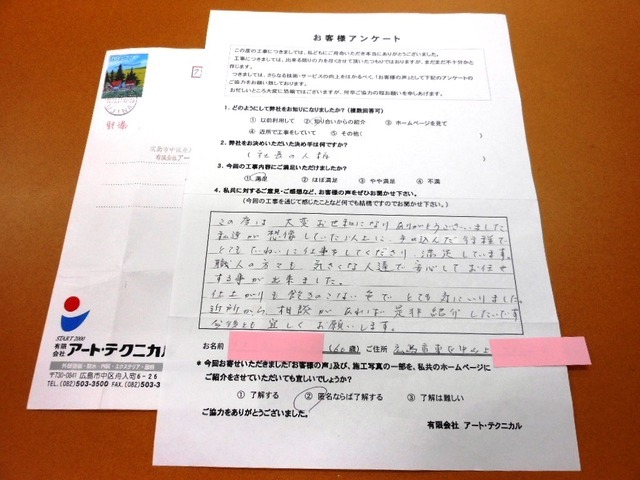 お客様アンケート
この度の工事につきましては、私どもにご用命いただき本当にありがとうございました。
工事につきましては、出来る限りの力を任させて頂いたつもりではおりますが、まだまだ不十分かと
存じます。
つきましては、さらなる技術・サービスの向上をはかるべく、「お客様の声」として下記のアンケートの
ご協力をお願い致しております。
お忙しいところ大変に恐縮ではございますが、何卒ご協力の程お願いを申しあげます。
1. どのようにして弊社をお知りになりましたか?(複数回答可)
① 以前利用して ② 知り合いからの紹介 ③ ホームページを見て
④ 近所で工事をしていて ⑤ その他( )
2. 弊社をお決めいただいた決め手は何ですか?
(社長の人柄 )
3. 今回の工事内容にご満足いただけましたか?
① 満足 ② ほぼ満足 ③ やや満足 ④ 不満
4. 私共に対するご意見・ご感想など、お客様の声をぜひお聞かせ下さい。
(今回の工事を通じて感じたことなど何でも結構ですのでお聞かせ下さい。)
この度は 大変お世話になりありがとうございました
私達が想像していた以上に、手の込んだ行程で
とてもていねいに仕事をしてくださり 満足しています。
職人の方々も 気さくな人達で安心してお任せ
する事が出来ました。
仕上がりも飽きのこない色で とても気にいりました。
近所から 相談があれば是非紹介したいです
今後とも宜しくお願いします。
お名前 (60歳) ご住所 広島市東区
* 今回お寄せいただきました「お客様の声」及び、施工写真の一部を、私共のホームページに
ご紹介をさせていただいても宜しいでしょうか?
① 了解する ② 匿名ならば了解する ③ 了解は難しい
ご協力をありがとうございました。
有限会社 アート・テクニカル
広島市中区舟
有限会社アー
START 2000
有限会社 アート・テクニカル
外部塗装・防水・内装・エクステリア・造園
〒730-0841 広島市中区舟入町6-26
TEL.(082)503-3500 FAX.(082)503-3